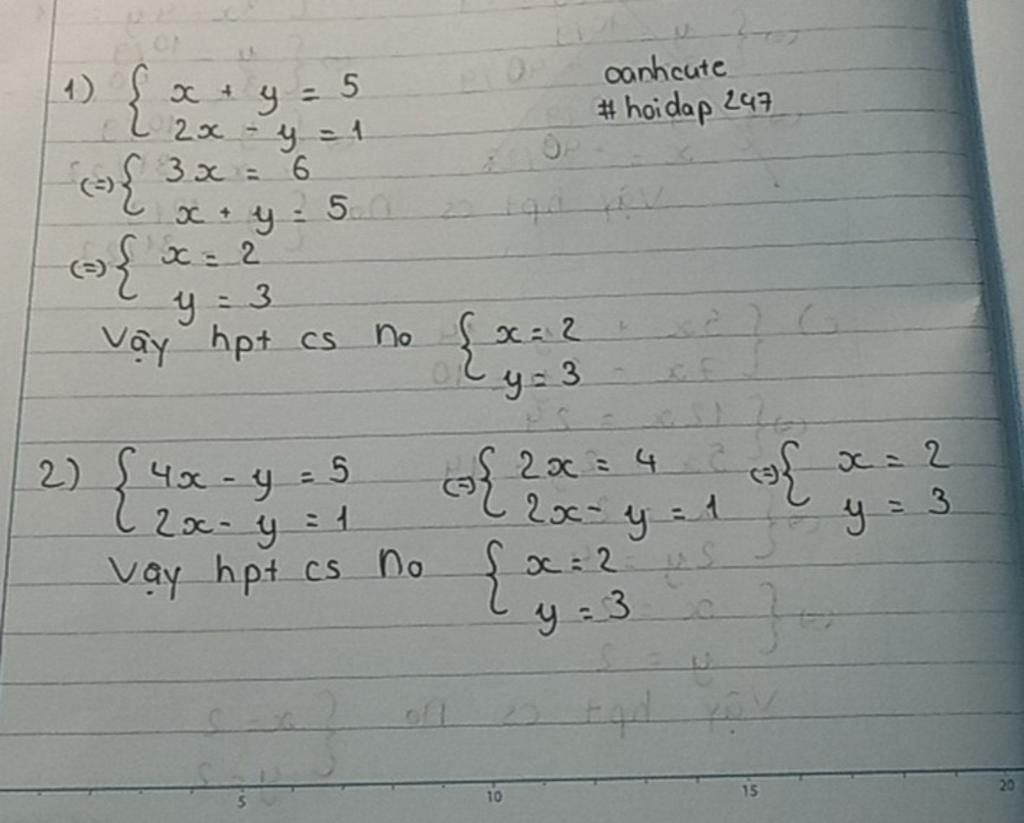 1) { x + y = 5
2x - y = 1
oanhcute
# hoidap 247
(=) { 3x = 6
x + y = 5
(=) { x = 2
y = 3
Vậy hpt cs no { x = 2
y = 3
2) { 4x - y = 5 (=) { 2x = 4 (=) { x = 2
2x - y = 1 2x - y = 1 y = 3
Vậy hpt cs no { x = 2
y = 3
5 10 15 20